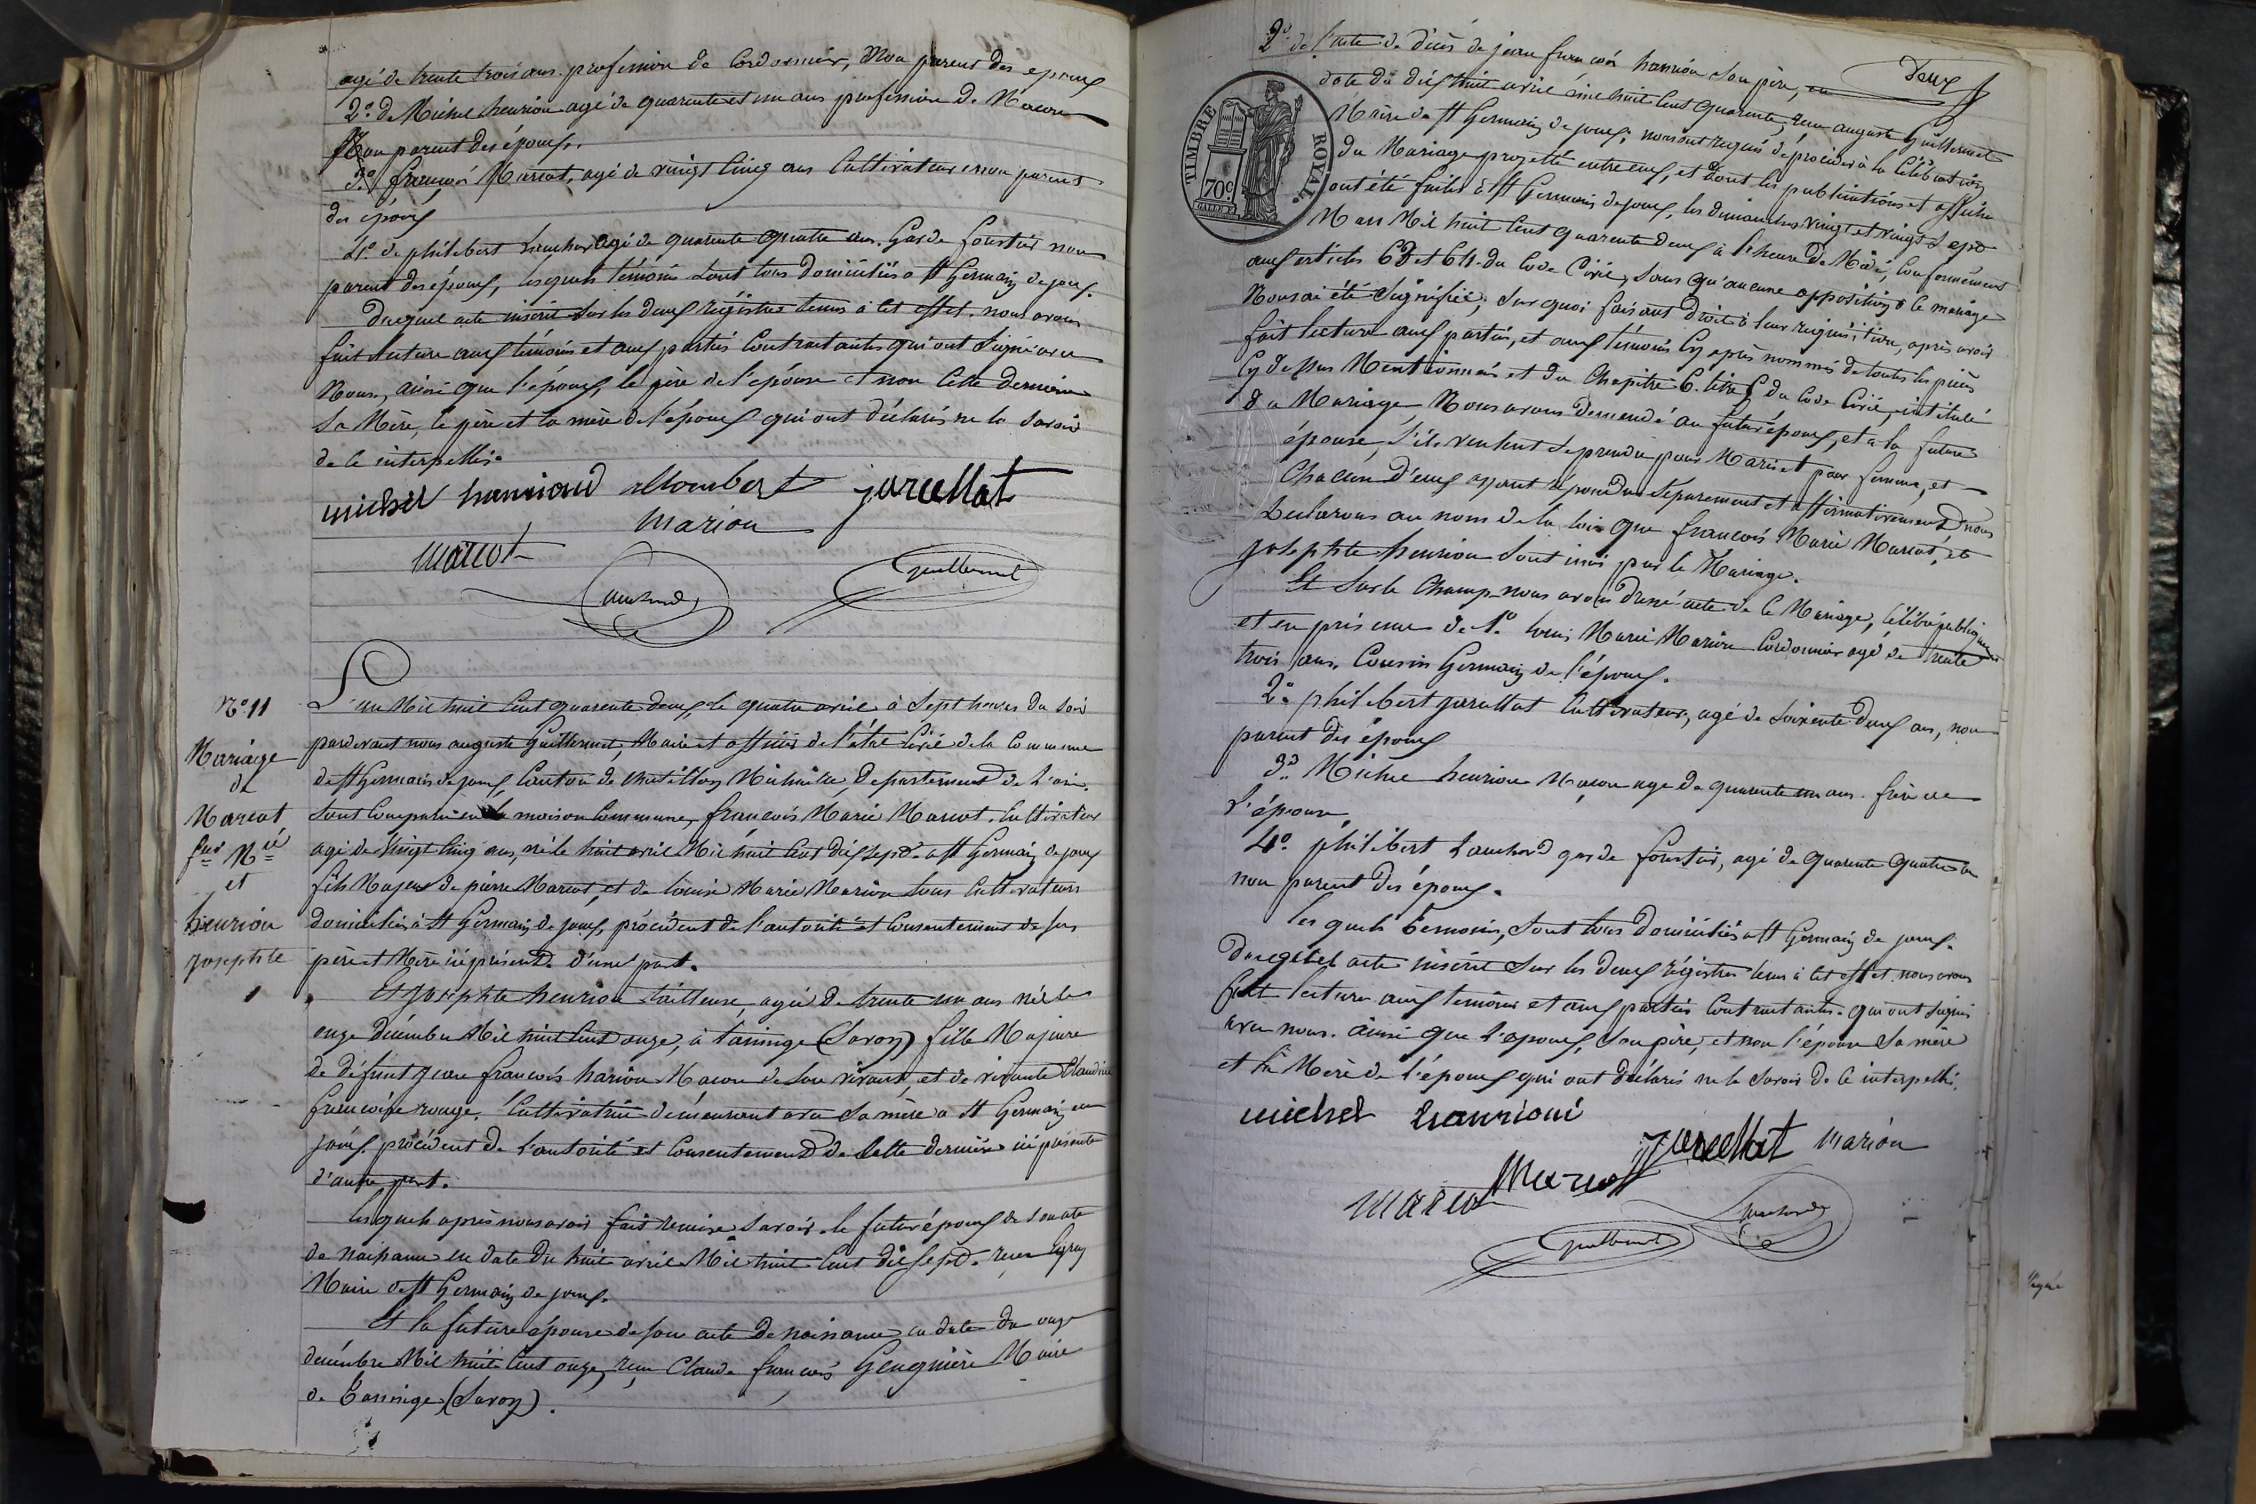 agé de trente trois ans profession de Cordonnier, Non parent des epoux
2.o de Michel henrion agé de quarante et un ans profession de Macon
Non parent des époux.
3.o françois Marcot, agé de vingt cinq ans Cultivateur non parent
des époux
4.o de philibert Lauchard agé de quarante quatre ans. Garde forestier non
parent des époux, lesquels témoins sont tous Domiciliés a St Germain de joux.
Duquel acte inscrit sur les deux régistres tenus à cet effet. nous avons
fait lecture aux témoins et aux parties Contractantes qui ont Signé avec
Nous, ainsi que l'époux, le père de l'epouse et non Cette derniere
Sa Mère, le père et la mère de l'époux qui ont déclarés ne le Savoir
de ce interpellés.
michel hanriond allombert jarcellat
Marion
Marcot
Lauchard Guillermet
N.o 11
Mariage
de
Marcot
fois Mie
et
henrion
josephte
L'an Mil huit Cent quarante deux, le quatre avril à Sept heures du Soir
pardevant nous auguste Guillermet, Maire et officier de l'état Civil de la Commune
de St Germain de joux, Canton de Chatillon Michaille, departement de l'ain.
Sont Comparu en la maison Commune, françois Marie Marcot, Cultivateur
agé de Vingt Cinq ans, né le huit avril Mil huit Cent dix Sept a St Germain de joux
fils Majeur de pierre Marcot, et de louise Marie Marion tous Cultivateurs
domiciliés à St Germain de joux, procédent de l'autorité et Consentement de Ses
père et Mère ici présents. d'une part.
Et josephte henrion tailleuse, agée de trente un ans née le
onze Décembre Mil huit Cent onze, à taninge (Savoy) fille Majeure
de défunt jean françois harion Macon de Son vivant, et de vivante Claudine
françoise rouge, Cultivatrice demeurant avec Sa mère a St Germain de
joux. procédent de l'autorité et Consentement de Cette dernière ici présente
d'autre part.
les quels après nous avoir fait remise Savoir. le futur époux de Son acte
de naissance en date du huit avril Mil huit Cent dix Sept. reçu
Maire de St Germain de joux.
Et la future épouse de Son acte de naissance en date du onze
decémbre Mil huit Cent onze, reçu Claude françois Maire
de Taninge (Savoy).
2.o de l'acte de décès de jean françois hanrion Son père, en
Deux
date du dix huit avril mil huit Cent quarante, reçu auguste Guillermet
Maire de St Germain de joux, nous ont requis de procéder à la Célébration
du Mariage projetté entre eux, et dont les publications et affiches
ont été faites à St Germain de joux, les dimanches vingt et vingt Sept
Mars Mil huit Cent quarante deux à l'heure de Midi, Conformement
aux articles 63 et 64 du Code Civil, Sans qu'aucune opposition à ce mariage
Nous ai été Signifiée, Sur quoi faisant Droit à leur requisition, après avoir
fait lecture aux parties, et aux témoins Cy après nommés de toutes les pièces
Cy dessus Mentionnées et du Chapitre 6. titre 5 du Code Civil, intitulé
du Mariage, Nous avons demandé au futur époux, et a la future
épouse, S'ils veulent Se prendre pour Mari et pour femme, et
Chacun d'eux ayant repondu Séparement et affirmativement, nous
Declarons au nom de la loi que françois Marie Marcot, et
josephte henrion Sont unis par le Mariage.
Et Sur le Champ nous avons dressé acte de ce Mariage, Célébré publiquement
et en présence de 1.o louis Marie Marion Cordonnier agé de trente
trois ans, Cousin Germain de l'époux.
2.o philibert jarcellat Cultivateur, agé de Soixente Deux ans, non
parent des époux
3.o Michel henrion Macon agé de quarante un ans. frère de
l'épouse,
4.o philibert Lauchard garde forestier, agé de quarante quatre ans
non parent des époux.
les quels témoins, Sont tous Domiciliés a St Germain de joux.
Duquel acte inscrit Sur les deux régistres tenus à cet effet. nous avons
fait lecture aux temoins et aux parties Contractantes. qui ont Signés
avec nous. ainsi que l'epoux, Son père, et non l'épouse Sa mère
et la Mère de l'époux qui ont déclarés ne le Savoir de ce interpellés.
michel hanriond
jarcellat Marion
Marcot Marcot
Lauchard
Guillermet
TIMBRE ROYAL
70c